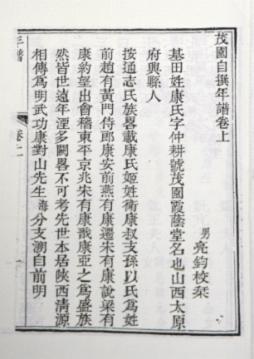 茂園自撰年譜卷上
男亮鈞校栞
基田姓康氏字仲耕號茂園霞蔭堂名也山西太原
府興縣人
按通志氏族畧載康氏姬姓衛康叔支孫以氏為姓
前趙有黃門侍郎康安前燕有康遷宋有康說梁有
康約望出會稽東平京兆宋有康戩康亞之為盛族
然皆世遠年湮多闕畧不可考先世本居陝西清源
相傳為明武功康對山先生海分支溯自前明
年譜
卷上
一